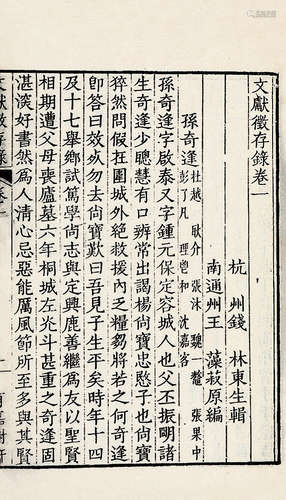 文獻徵存錄卷一
杭州錢 林東生輯
南通州王 藻菽原編
孫奇逢 杜越 耿介 張沐 魏一鼇 張果中
彭了凡 理鬯和 沈嘉客
孫奇逢字啟泰又字鍾元保定容城人也父丕振朙諸
生奇逢少聰慧有口辨常出謁楊尚寶忠愍子也尚寶
猝然問假在圍城外絕救援內乏糧芻將若之何奇逢
卽答曰效死勿去尚寶歎曰吾見子生平矣時年十四
及十七舉鄉試篤學尚志與定興鹿善繼爲友以聖賢
相期遭父母喪廬墓六年桐城左光斗甚重之奇逢固
湛淡好書然爲人清心忌惡能厲風節所至多與其賢
文獻徵存錄 卷一 一 有嘉樹軒